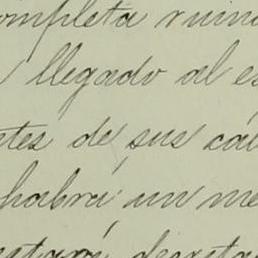 completa ruin
llegado al es
tes de sus cá
habrá un me